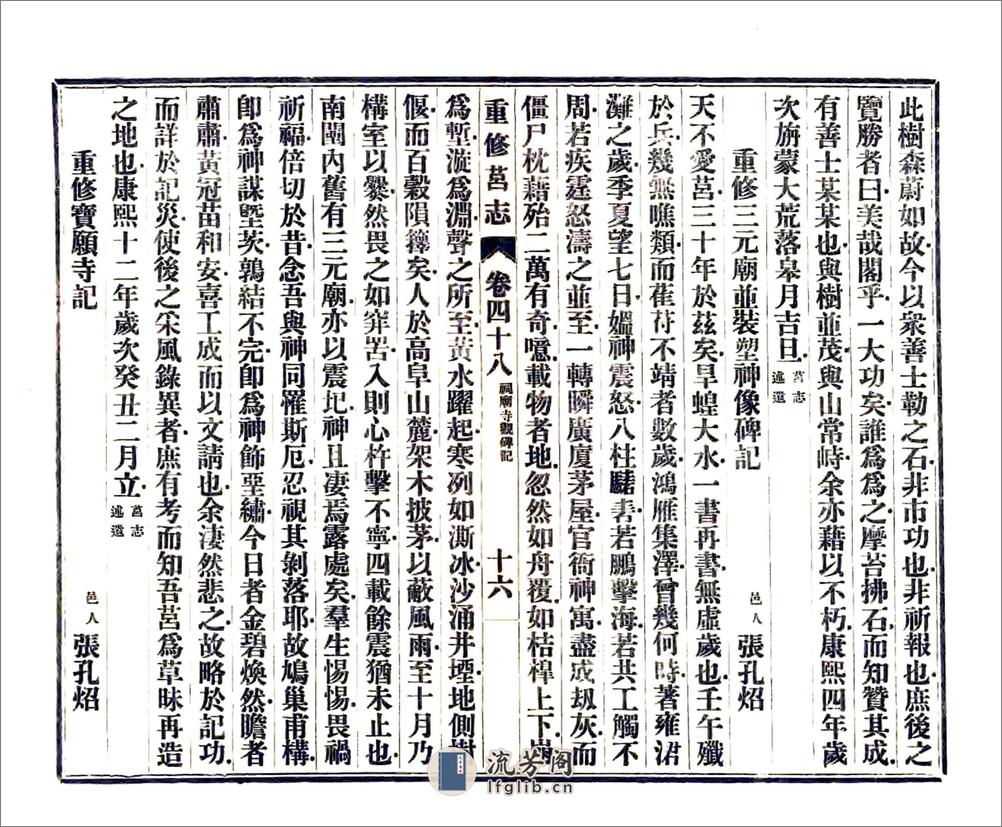 此樹森蔚如故今以衆善士勒之石非市功也非祈報也庶後之
覽勝者曰美哉閣乎一大功矣誰爲爲之摩苔拂石而知贊其成
有善士某某也與樹並茂與山常峙余亦藉以不朽康熙四年歲
次旃蒙大荒落皋月吉旦 莒志述遺
重修三元廟並裝塑神像碑記 邑人 張孔炤
天不愛莒三十年於茲矣旱蝗大水一書再書無虛歲也壬午殲
於兵幾無噍類而萑苻不靖者數歲鴻雁集澤曾幾何時著雍涒
灘之歲季夏望七日媼神震怒八柱騞砉若鵬擊海若共工觸不
周若疾霆怒濤之並至一轉瞬廣厦茅屋官衙神寓盡成刼灰而
僵尸枕藉殆二萬有奇噫載物者地忽然如舟覆如桔槔上下崩
重修莒志 卷四十八 祠廟寺觀碑記 十六
爲塹漩爲淵聲之所至黃水躍起寒冽如澌冰沙涌井堙地側樹
偃而百穀隕籜矣人於高阜山麓架木披茅以蔽風雨至十月乃
構室以爨然畏之如穽罟入則心杵擊不寧四載餘震猶未止也
南闉內舊有三元廟亦以震圮神且凄焉露處矣羣生惕惕畏禍
祈福倍切於昔念吾與神同罹斯厄忍視其剝落耶故鳩巢甫構
卽爲神謀墍茨鶉結不完卽爲神飾堊繡今日者金碧煥然瞻者
肅肅黃冠苗和安喜工成而以文請也余淒然悲之故略於記功
而詳於記災使後之采風錄異者庶有考而知吾莒爲草昧再造
之地也康熙十二年歲次癸丑二月立 莒志述遺
重修寶願寺記 邑人 張孔炤
流芳阁
lfglib.cn